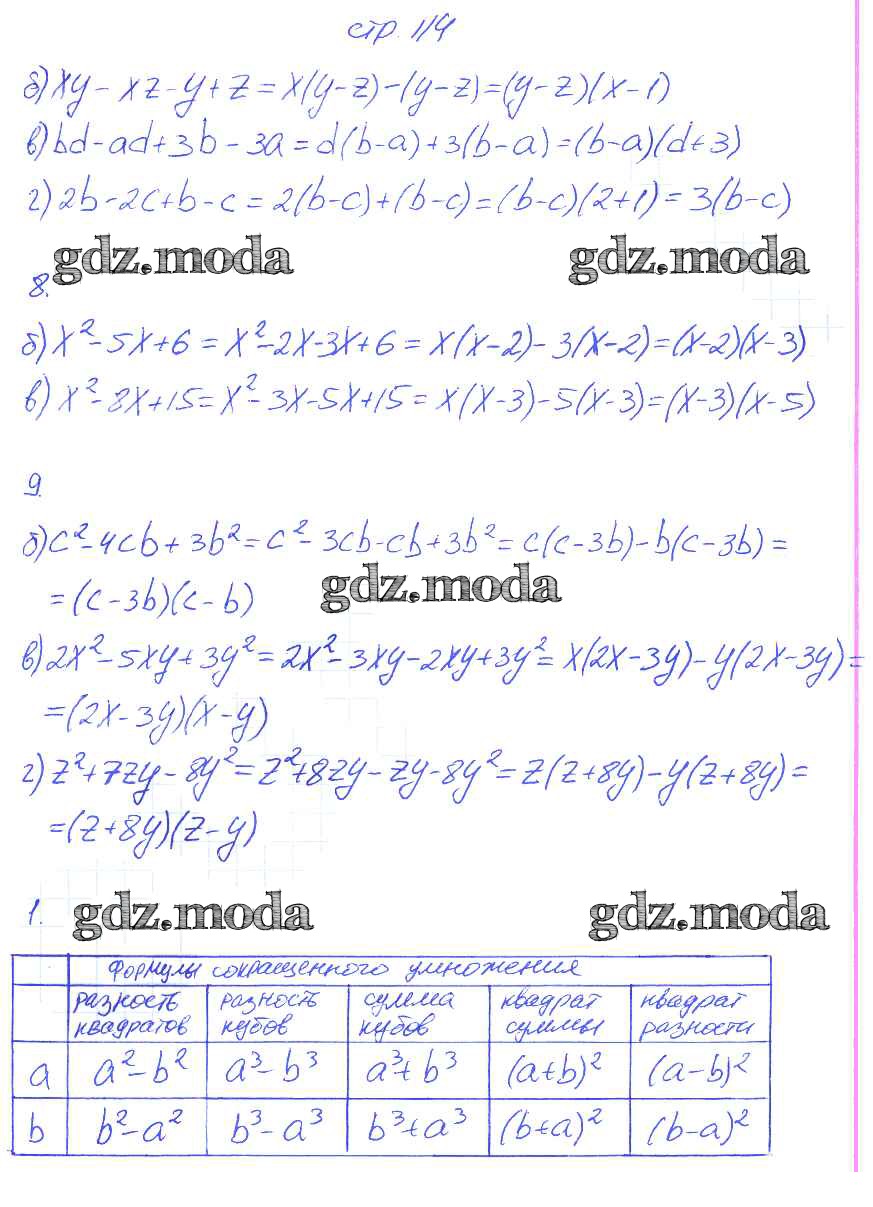 стр. 114
б) xy - xz - y + z = x(y - z) - (y - z) = (y - z)(x - 1)
в) bd - ad + 3b - 3a = d(b - a) + 3(b - a) = (b - a)(d + 3)
г) 2b - 2c + b - c = 2(b - c) + (b - c) = (b - c)(2 + 1) = 3(b - c)
gdz.moda gdz.moda
8.
б) x² - 5x + 6 = x² - 2x - 3x + 6 = x(x - 2) - 3(x - 2) = (x - 2)(x - 3)
в) x² - 8x + 15 = x² - 3x - 5x + 15 = x(x - 3) - 5(x - 3) = (x - 3)(x - 5)
9.
б) c² - 4cb + 3b² = c² - 3cb - cb + 3b² = c(c - 3b) - b(c - 3b) =
= (c - 3b)(c - b)
gdz.moda
в) 2x² - 5xy + 3y² = 2x² - 3xy - 2xy + 3y² = x(2x - 3y) - y(2x - 3y) =
= (2x - 3y)(x - y)
г) z² + 7zy - 8y² = z² + 8zy - zy - 8y² = z(z + 8y) - y(z + 8y) =
= (z + 8y)(z - y)
1.
gdz.moda gdz.moda
формулы сокращенного умножения
разность квадратов | разность кубов | сумма кубов | квадрат суммы | квадрат разности
a | a² - b² | a³ - b³ | a³ + b³ | (a + b)² | (a - b)²
b | b² - a² | b³ - a³ | b³ + a³ | (b + a)² | (b - a)²